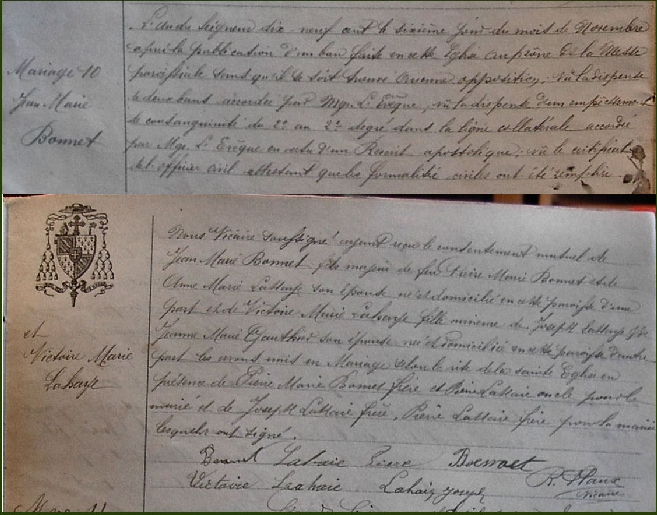 Mariage 10
Jean Marie
Bonnet
L'an du Seigneur dix neuf cent le sixième jour du mois de Novembre
après la publication d'un ban faite en cette Eglise au prône de la Messe
paroissiale sans qu'il se soit trouvé aucune opposition, vu la dispense
de deux bans accordée par Mgr L'Evêque, vu la dispense d'un empêchement
de consanguinité du 2e au 2e degré dans la ligne collatérale accordée
par Mgr L'Evêque en vertu d'un Rescrit apostolique; vu le certificat
de l'officier civil attestant que les formalités civiles ont été remplies.
et
Victoire Marie
Lahaye
Nous Vicaire soussigné avons reçu le consentement mutuel de
Jean Marie Bonnet fils majeur de feu Pierre Marie Bonnet et de
Anne Marie son épouse né et domicilié en cette paroisse d'une
part et de Victoire Marie fille mineure de Joseph
Jeanne Marie son épouse née et domiciliée en cette paroisse d'autre
part les avons unis en Mariage selon le rite de la sainte Eglise en
présence de Pierre Marie Bonnet frère et Pierre oncle pour le
marié et de Joseph frère, Pierre frère pour la mariée
lesquels ont signé.
Bonnet Lahaie Pierre Bonnet
Victoire Lahaie Lahaie joseph
vicaire